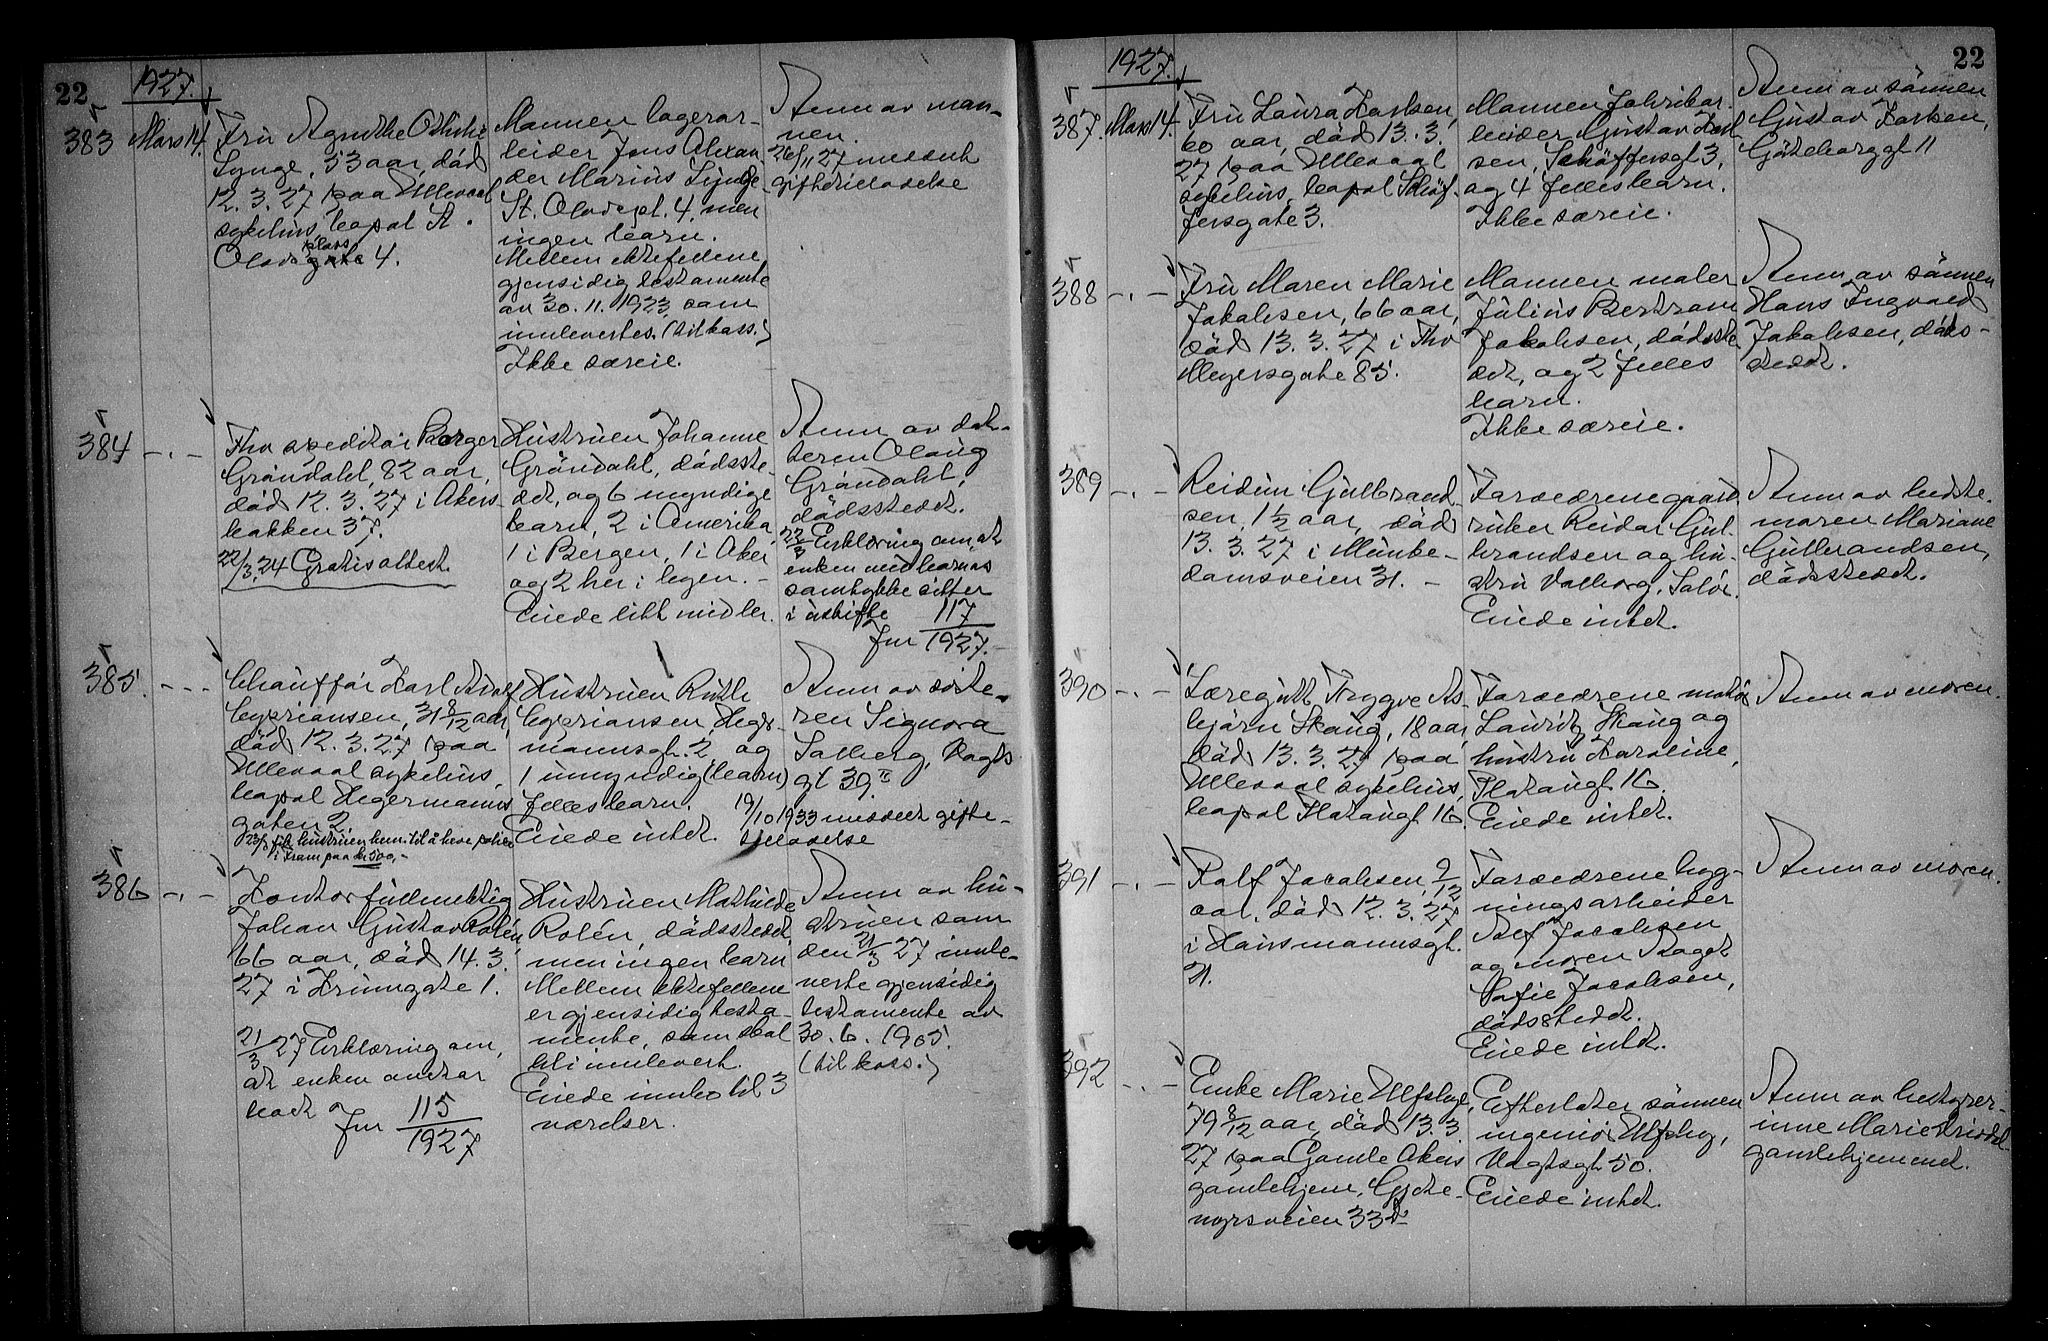 22
1927.
383 Mars 14. Fru Agnethe Othilie
Lynge, 53 aar, død
12.3.27 paa Ullevaal
sykehus, bopæl St.
plass
Olavs gate 4.
Mannen lagerar-
beider Jens Alexan-
der Marius Lynge
St. Olavspl. 4, men
ingen barn.
Mellem ektefellene
gjensidig testamente
av 30.11.1923, som
innlevertes. (tilbass.)
Ikke særeie.
Anm av man-
nen.
26/11 27 meddelt
giftetillatelse
384 -.- Fhv speditør Borger
Gröndahl, 82 aar,
död 12.3.27 i Akers
bakken 37.
22/3.24 Gratisattest
Hustruen Johanne
Gröndahl, dödsste-
det, og 6 myndige
barn, 2 i Amerika,
1 i Bergen, 1 i Aker
og 2 her i byen. -
Eiede litt midler.
Anm av dat-
teren Olaug
Gröndahl,
dödsstedet.
22/3 Erklæring om, at
enken med barnas
samtykke sitter
i uskifte 117
Jnr 1927.
385. - - - Chauffør Karl Adolf
Cypriansen, 31 8/12 aar,
död 12.3.27 paa
Ullevaal sykehus,
bopæl Hegermanns
gaten 2.
23/3 fik hustruen hen. til å heve polise
i Fram paa kr 500,-
Hustruen Ruth
Cypriansen, Heger-
mannsgt. 2, og
1 umyndig (barn)
felles barn.
Eiede intet.
Anm av söste-
ren Signora
Solberg, Vogts
gt 39 II
19/10 1933 meddelt gifte-
tillatelse
386 -.- Kontorfullmektig
Johan Gustav Rolén,
66 aar, död 14.3.
27 i Krumgate 1.
21/3 27 Erklæring om,
at enken overtar
boet Jnr 115
1927
Hustruen Mathilde
Rolén, dödsstedet,
men ingen barn
Mellem ektefellene
er gjensidig testa-
mente, som skal
bli innlevert.
Eiede innbo til 3
værelser.
Anm av hu-
struen som
den 21/3 27 innle-
verte gjensidig
testamente av
30.6.1905.
(til bass.)
22
1927.
387. Mars 14. Fru Laura Karlsen,
60 aar, död 13.3.
27 paa Ullevaal
sykehus, bopæl Schøf-
fersgate 3.
Mannen fabrikar-
beider Gustav Karl
sen, Schøffersgt 3,
og 4 felles barn.
Ikke særeie.
Anm av sönnen
Gustav Karlsen,
Göteborggt 11
388 -.- Fru Maren Marie
Jakobsen, 66 aar,
död 13.3.27 i Thv
Meyersgate 85.
Mannen maler
Julius Bertram
Jakobsen, dödsste-
det, og 2 felles
barn.
Ikke særeie.
Anm av sönnen
Hans Ingvald
Jakobsen, döds-
stedet.
389 -.- Reidun Gulbrand-
sen, 1 1/2 aar, död
13.3.27 i Munke-
damsveien 31. -
Foreldrene gaard-
Reidar Gul-
brandsen og hu-
stru Valborg,
Eiede intet.
Anm av beste-
moren Mariane
Gulbrandsen,
dödsstedet.
390 -.- Læregutt Trygve As-
bjørn Skaug, 18 aar,
död 13.3.27 paa
Ullevaal sykehus,
bopæl Platousgt 16
Foreldrene
Lauritz Skaug og
hustru Karoline,
Platousgt 16.
Eiede intet.
Anm av moren.
391 -.- Rolf Jacobsen, 2/12
aar, död 12.3.27
i Hausmannsgt.
21.
Foreldrene byg-
ningsarbeider
Alf Jacobsen
og moren Aagot
Sofie Jacobsen,
dödsstedet.
Eiede intet.
Anm av moren.
392 -.- Enke Marie Ulfsby,
79 8/12 aar, död 13.3.
27 paa Gamle Akers
gamlehjem, Gjete-
myrsveien 33
Efterlater sönnen
ingeniör Ulfsby,
Vogtsgt 50.
Eiede intet.
Anm av bestyrer-
inne Marie
gamlehjemmet.